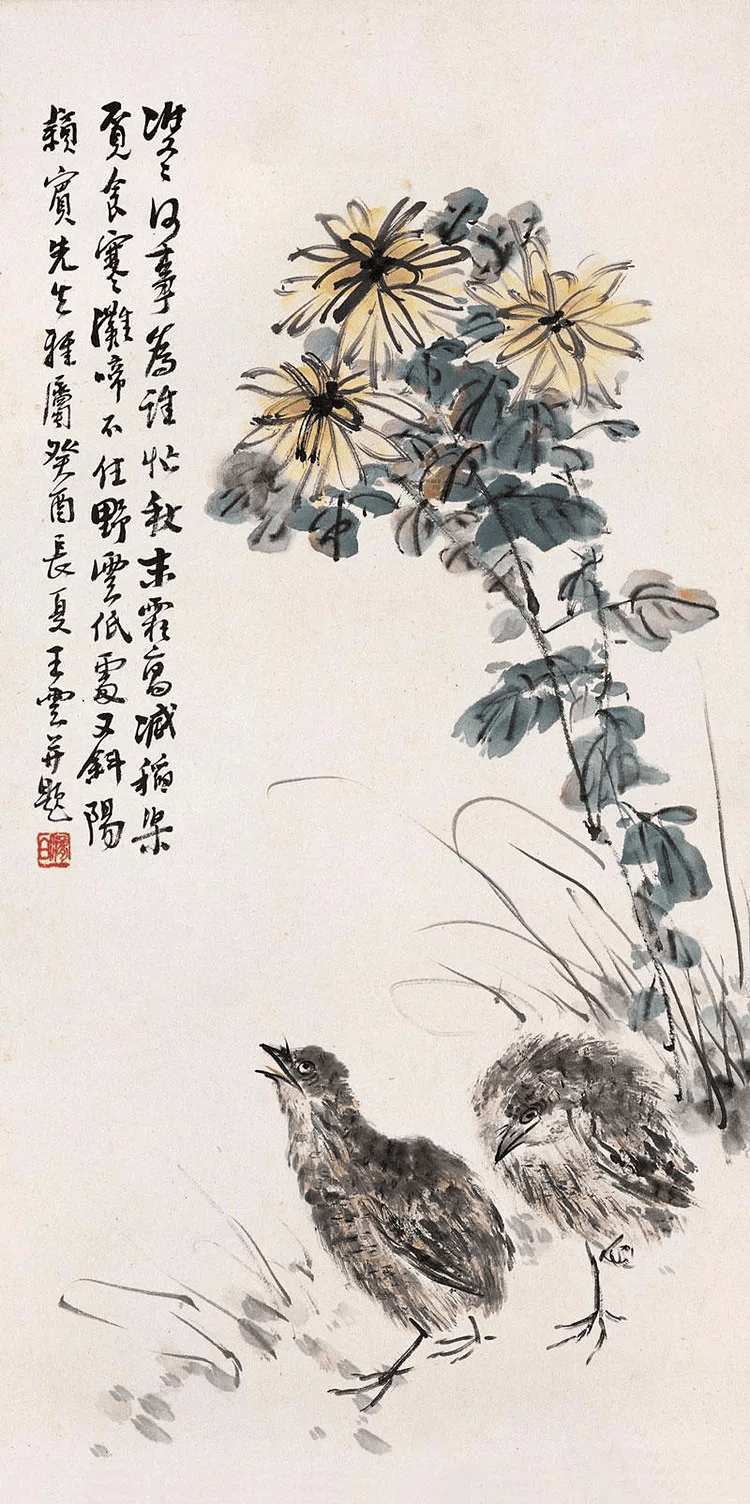 雙〻何事為誰忙秋末霜高減稻粱
覓食寒灘啼不住野雲低處又斜陽
賓先生雅屬癸酉長夏王雲并題